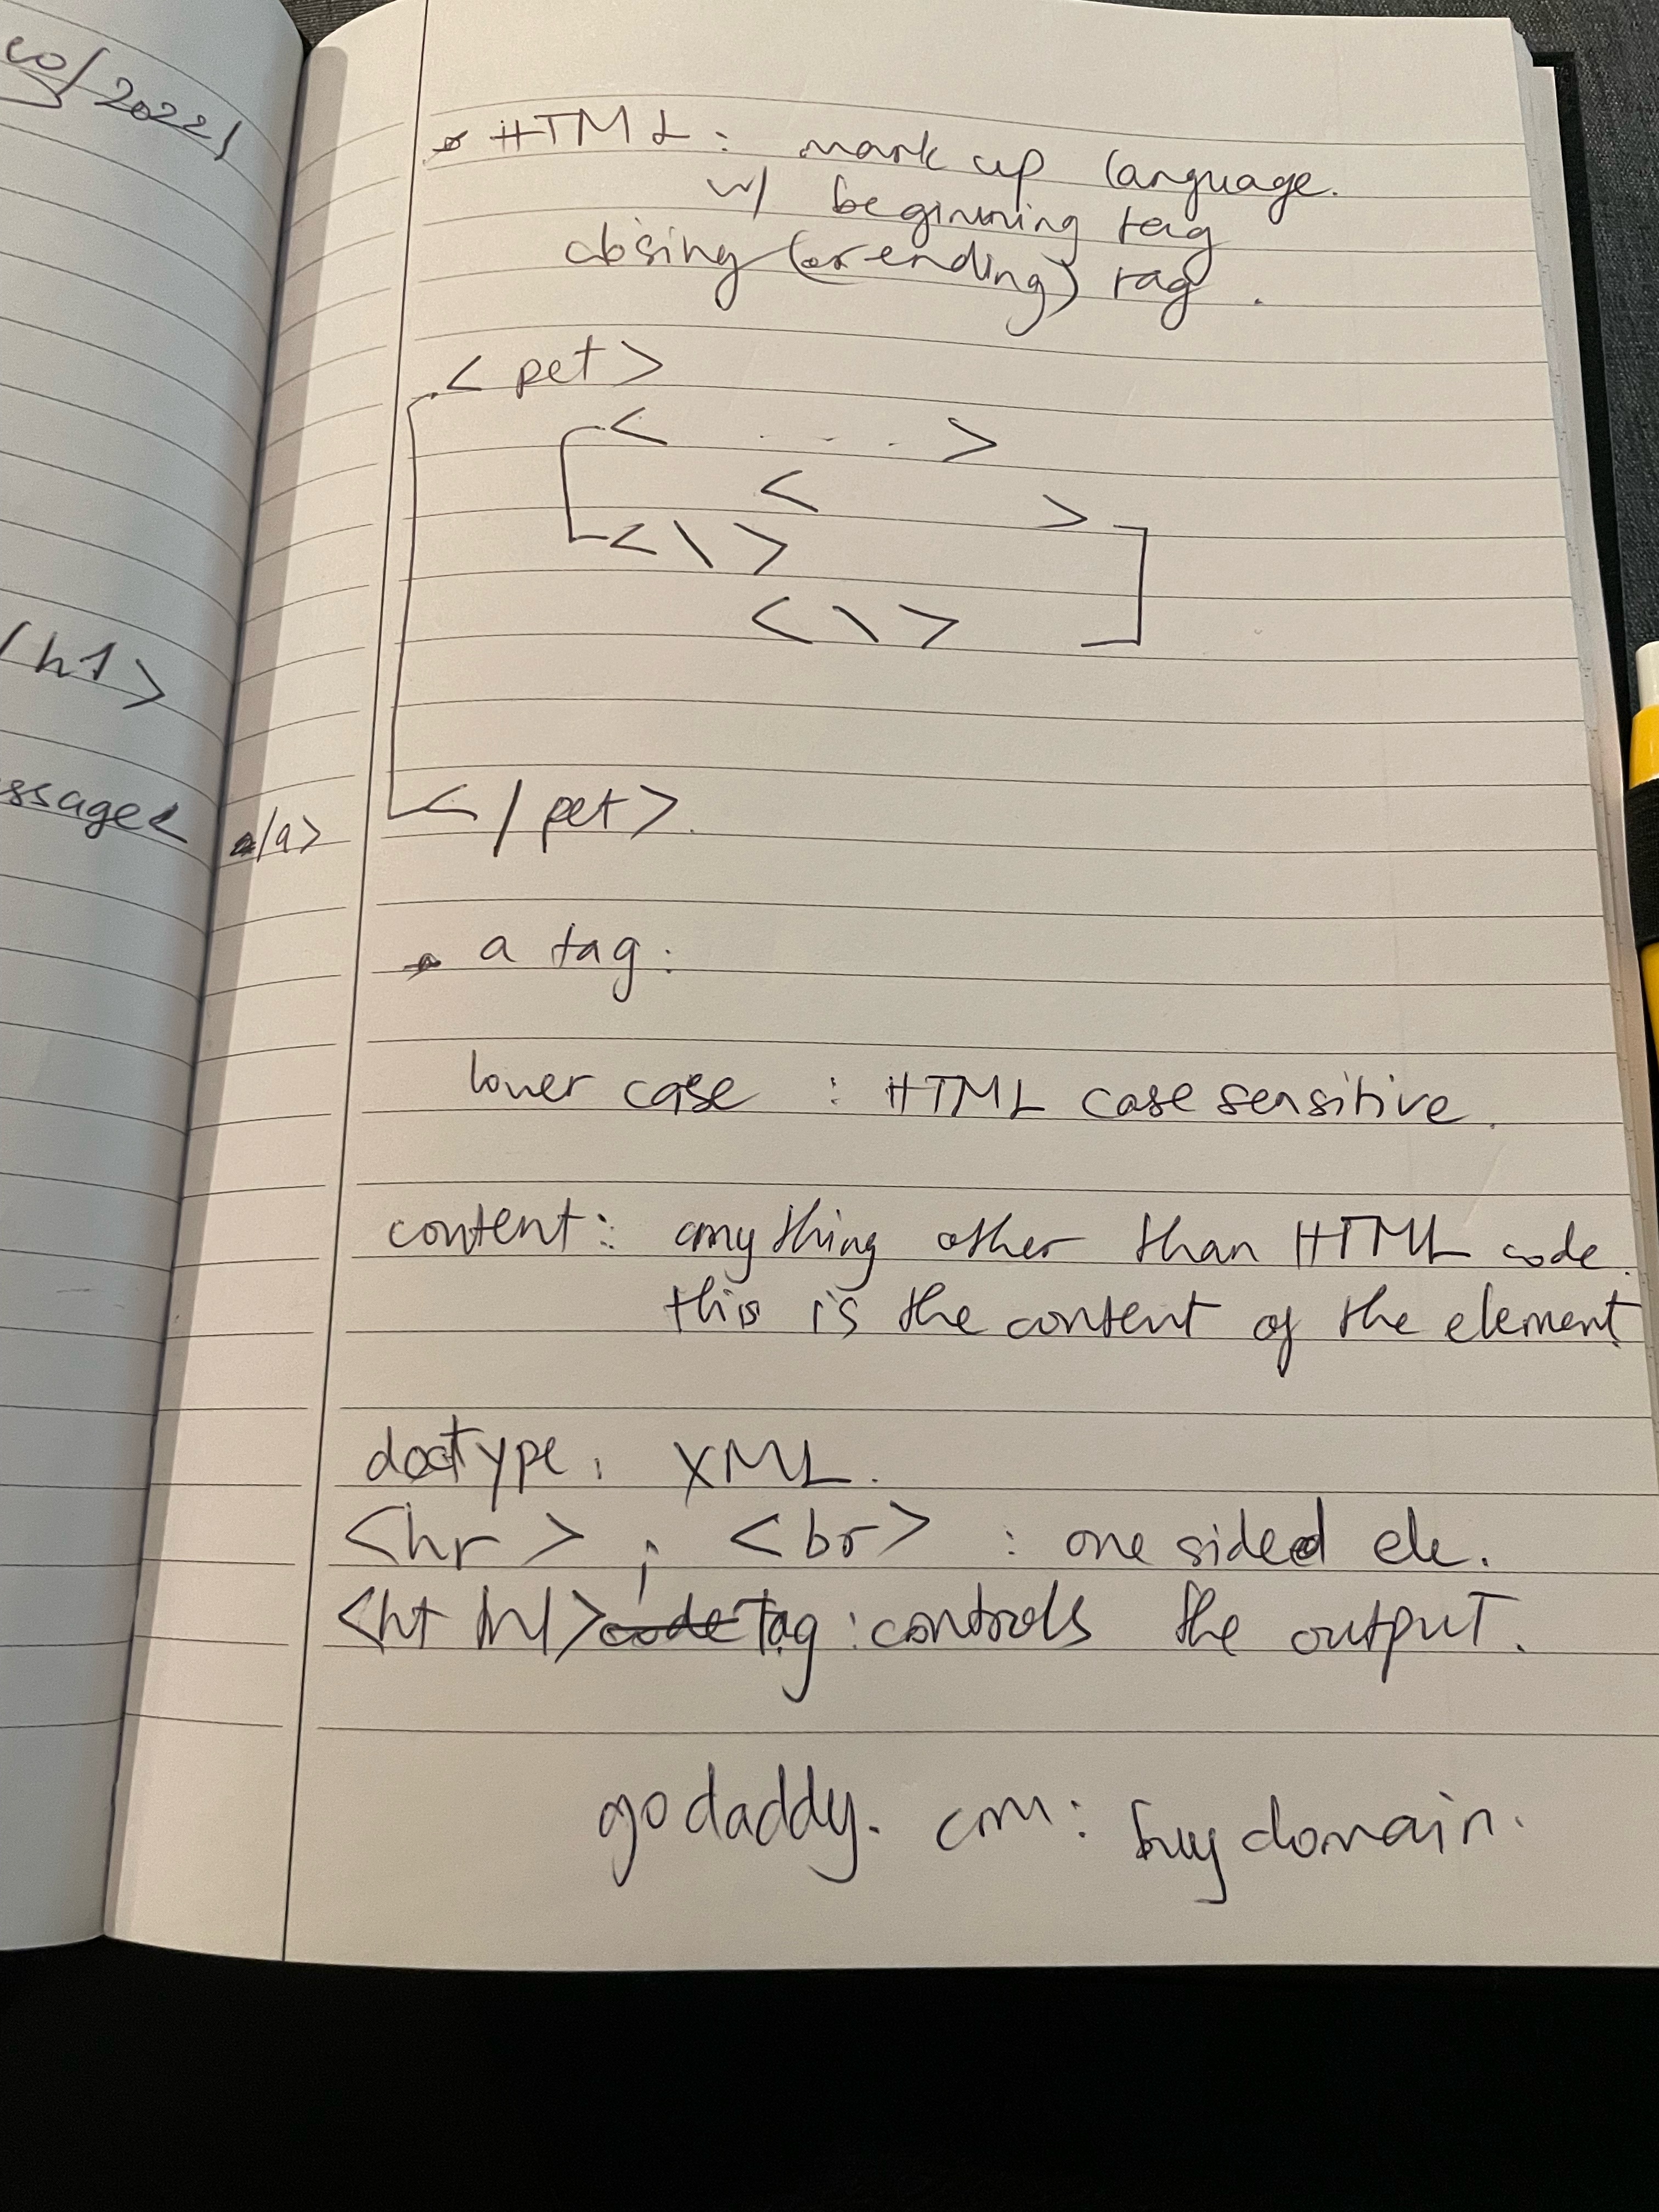 co/2022/
/h1>
ssage<
</a>
HTML: mark up language.
w/ beginning tag
closing (or ending) tag.
<pet>
< . . . >
< >
<\>
<\>
</pet>.
a tag:
lower case : HTML case sensitive.
content: anything other than HTML code.
this is the content of the element
doctype, XML.
<hr> ; <br> : one sided ele.
<html> code Tag : controls the output.
godaddy. com: buy domain.